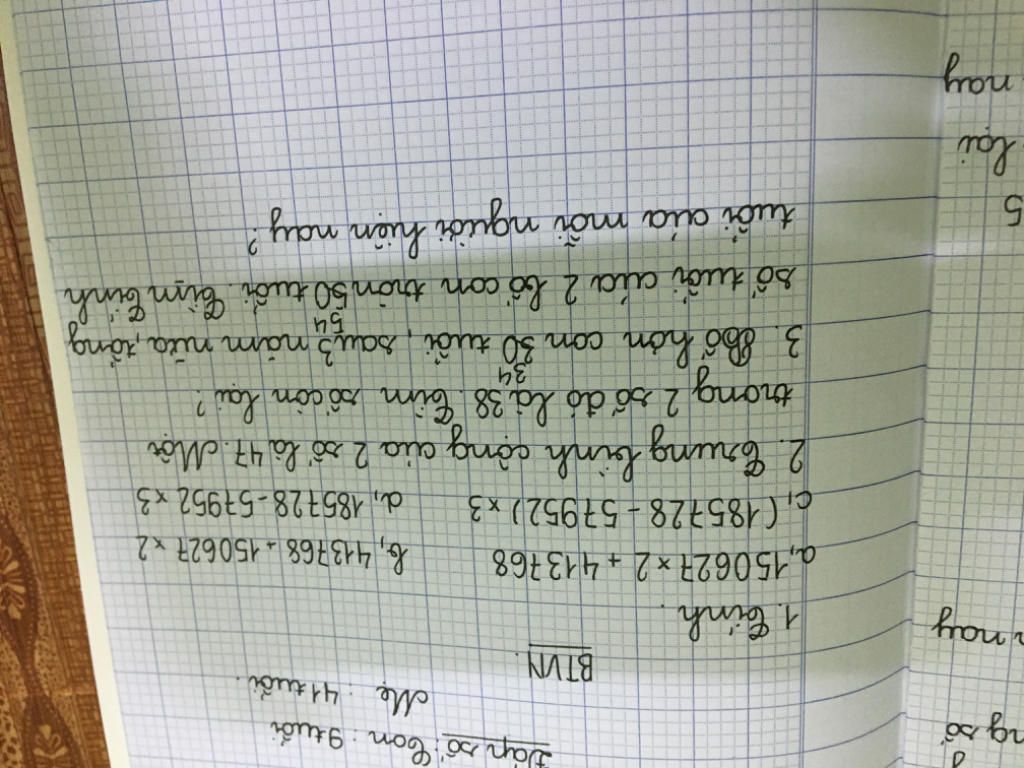 ng số
n nay
5
lại
nay
Đáp số: Con: 9 tuổi
Mẹ: 41 tuổi.
BTVN.
1. Tính.
a, 150627 × 2 + 413768 b, 413768 - 150627 × 2
c, (185728 - 57952) × 3 d, 185728 - 57952 × 3
2. Trung bình cộng của 2 số là 47. Một
trong 2 số đó là 38. Tìm số còn lại?
34
3. Bố hơn con 30 tuổi, sau 3 năm nữa, tổng
54
số tuổi của 2 bố con tròn 50 tuổi. Tìm tính
tuổi của mỗi người hiện nay?